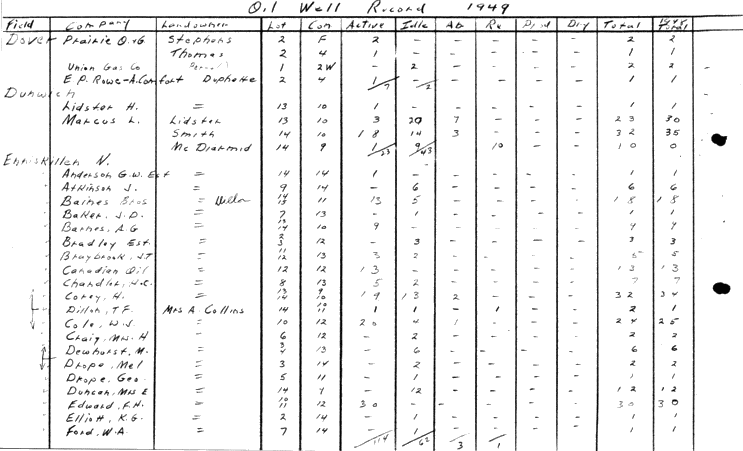 Oil Well Record 1949
Field Company Landowner Lot Con Active Idle Ab Re Prod Dry Total Total
Dover Prairie O.&G. Stephens 2 F 2 - - - - - 2 2
Thomas 2 4 1 - - - - - 1 1
Union Gas Co 1 2W - 2 - - - - 2 2
E.P. Rowe-A.Comfort Duphette 2 4 1/7 -/2 - - - - 1 1
Dunwich
Lidster H. = 13 10 1 - - - - - 1 1
Marcus L. Lidster 13 10 3 20 7 - - - 23 30
Smith 14 10 18 14 3 - - - 32 35
Mc Diarmid 14 9 1/23 9/43 - 10 - - 10 0
Enniskillen N.
Anderson G.W. Est = 14 14 1 - - - - - 1 1
Atkinson J. = 9 14 - 6 - - - - 6 6
Baines Bros = 14/13 11 13 5 - - - - 18 18
Baker, J.D. = 7 13 - 1 - - - - 1 1
Barnes, A.G = 13/14 10 9 - - - - - 9 9
Bradley Est. = 2/3 12 - 3 - - - - 3 3
Braybrook, J.T = 11/12 13 3 2 - - - - 5 5
Canadian Oil = 12 12 13 - - - - - 13 13
Chandler, H.C. = 8 13 5 2 - - - - 7 7
Corey, H. = 13/14 9/10 19 13 2 - - - 32 34
Dillon, T.F. Mrs A. Collins 14 10/11 1 1 - 1 - - 2 1
Cole, W.S. = 10 12 20 4 1 - - - 24 25
Craig, Mrs. H = 6 12 - 2 - - - - 2 2
Dewhurst, M. = 3/4 13 - 6 - - - - 6 6
Drope, Mel = 3 14 - 2 - - - - 2 2
Drope, Geo. = 5 11 - 1 - - - - 1 1
Duncan, Mrs E = 14 9 - 12 - - - - 12 12
Edward, F.H. = 10/11 12 30 - - - - - 30 30
Elliott, K.G. = 2 14 - 1 - - - - 1 1
Ford, W.A. = 7 14 -/114 1/62 -/3 -/1 - - 1 1